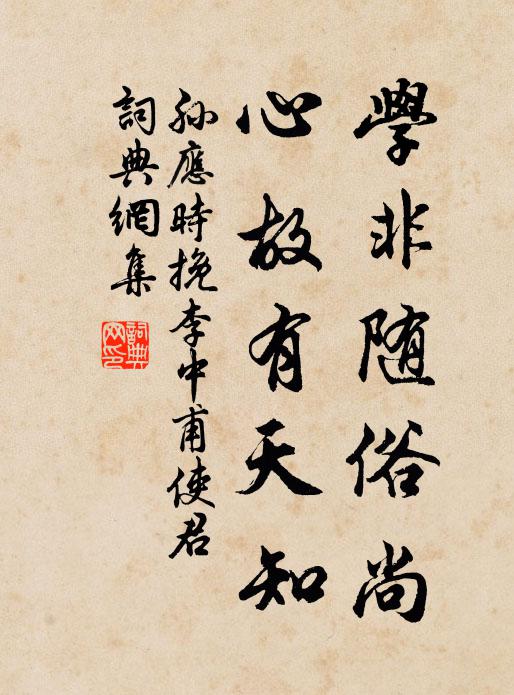 學非随俗尚
心故有天知
孫應時挽李中甫使君
詞典網集
詞典网印